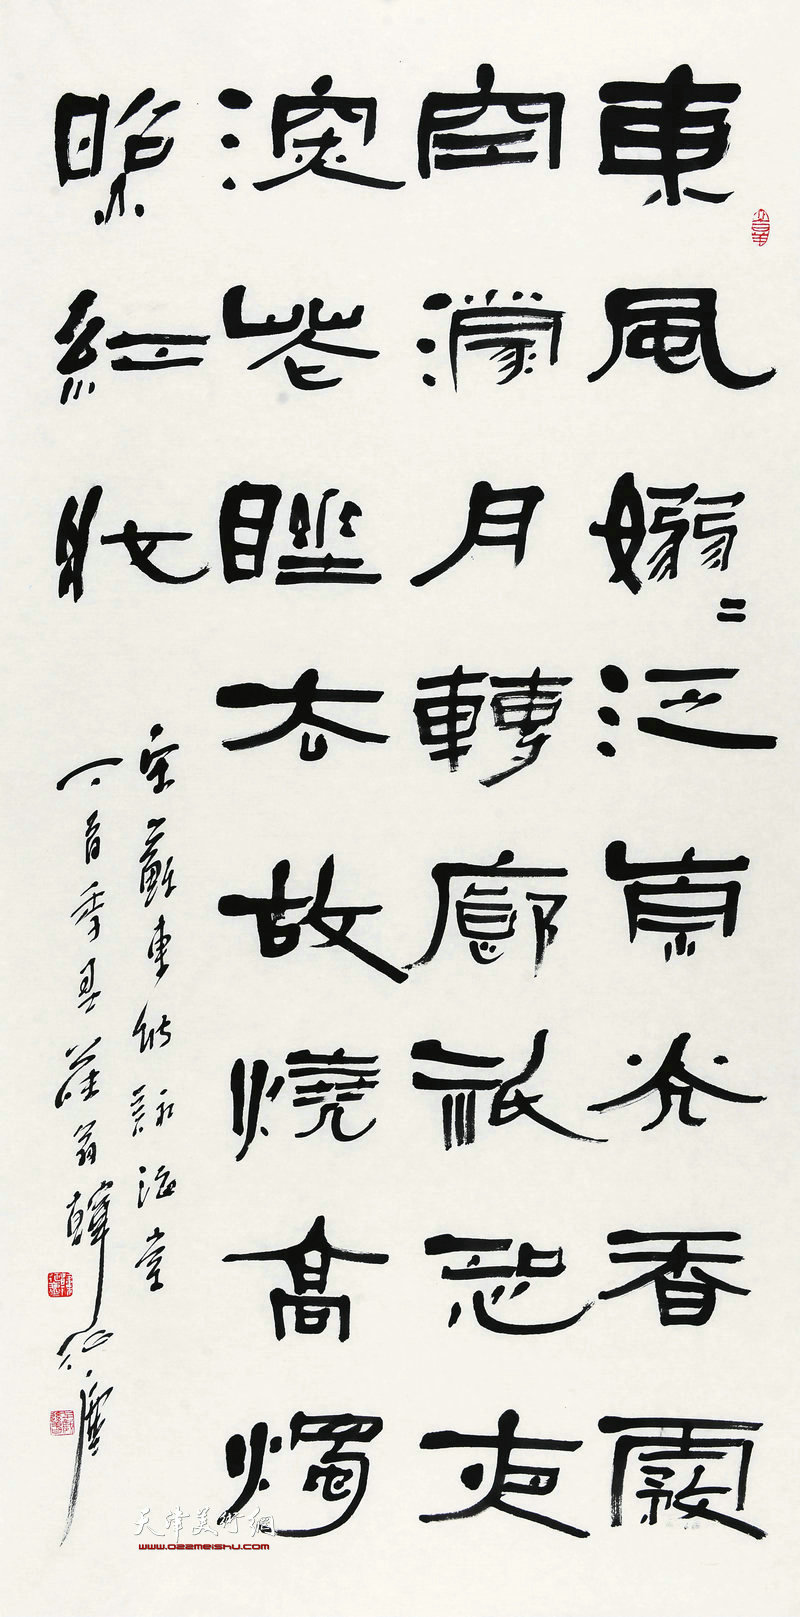 東風嫋〻泛崇光香霧
空濛月轉廊祇恐夜
深花睡去故燒高燭
照紅妝
宋蘇東坡詠海棠
丁酉季春翁韓
天津美術網
www.022meishu.com